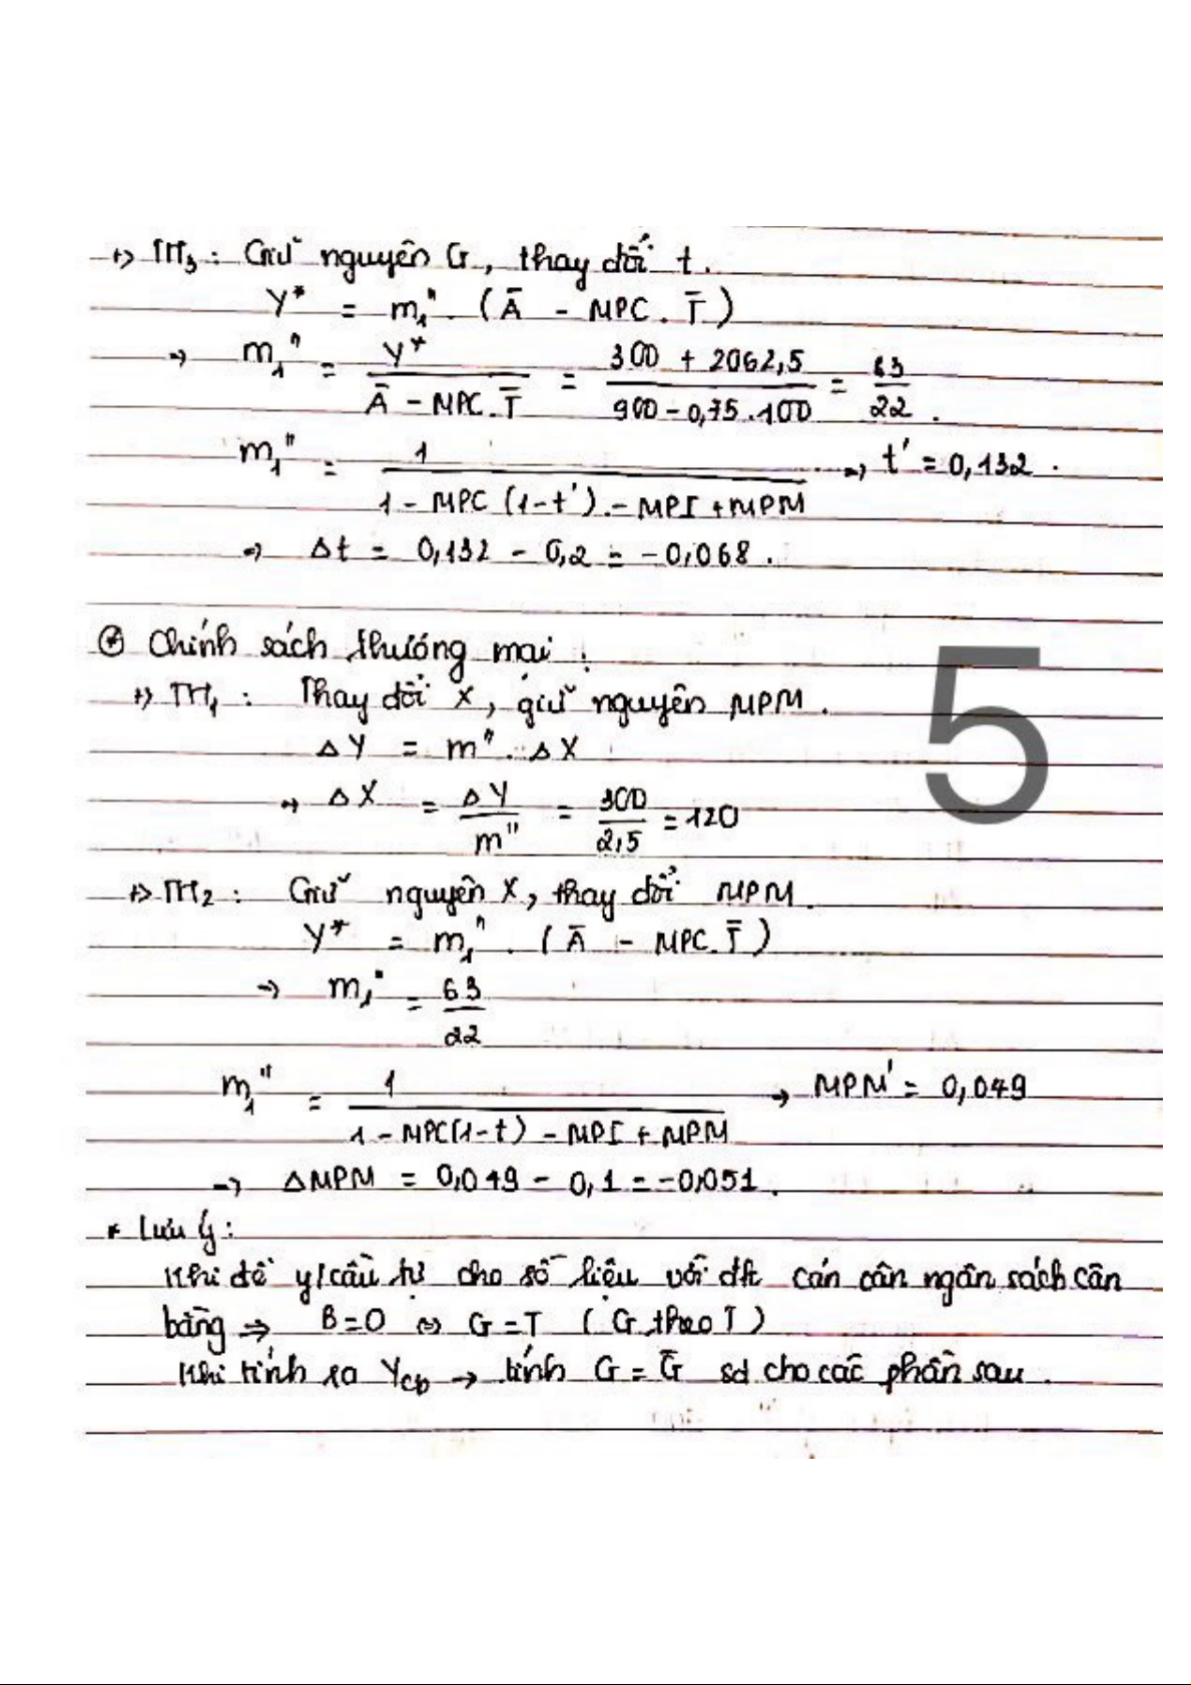 +> TH3 : Giữ nguyên G, thay đổi t.
Y* = m1''. (Ā - MPC. T̄)
→ m1'' = Y* / (Ā - MPC.T̄) = (300 + 2062,5) / (900 - 0,75.100) = 63/22.
m1'' = 1 / (1 - MPC (1-t') - MPI + MPM) → t' = 0,132.
→ Δt = 0,132 - 0,2 = -0,068.
⊛ Chính sách thương mại :
+> TH1 : Thay đổi X, giữ nguyên MPM.
ΔY = m''. ΔX
→ ΔX = ΔY / m'' = 300 / 2,5 = 120
5
+> TH2 : Giữ nguyên X, thay đổi MPM.
Y* = m1''. (Ā - MPC.T̄)
→ m1'' = 63/22
m1'' = 1 / (1 - MPC(1-t) - MPI + MPM) → MPM' = 0,049
→ ΔMPM = 0,049 - 0,1 = -0,051.
* Lưu ý :
Khi đề y/cầu tự cho số liệu với đk cán cân ngân sách cân
bằng ⇒ B=0 ⇔ G=T ( G theo T )
Khi tính ra Ycb → tính G = Ḡ sd cho các phần sau.